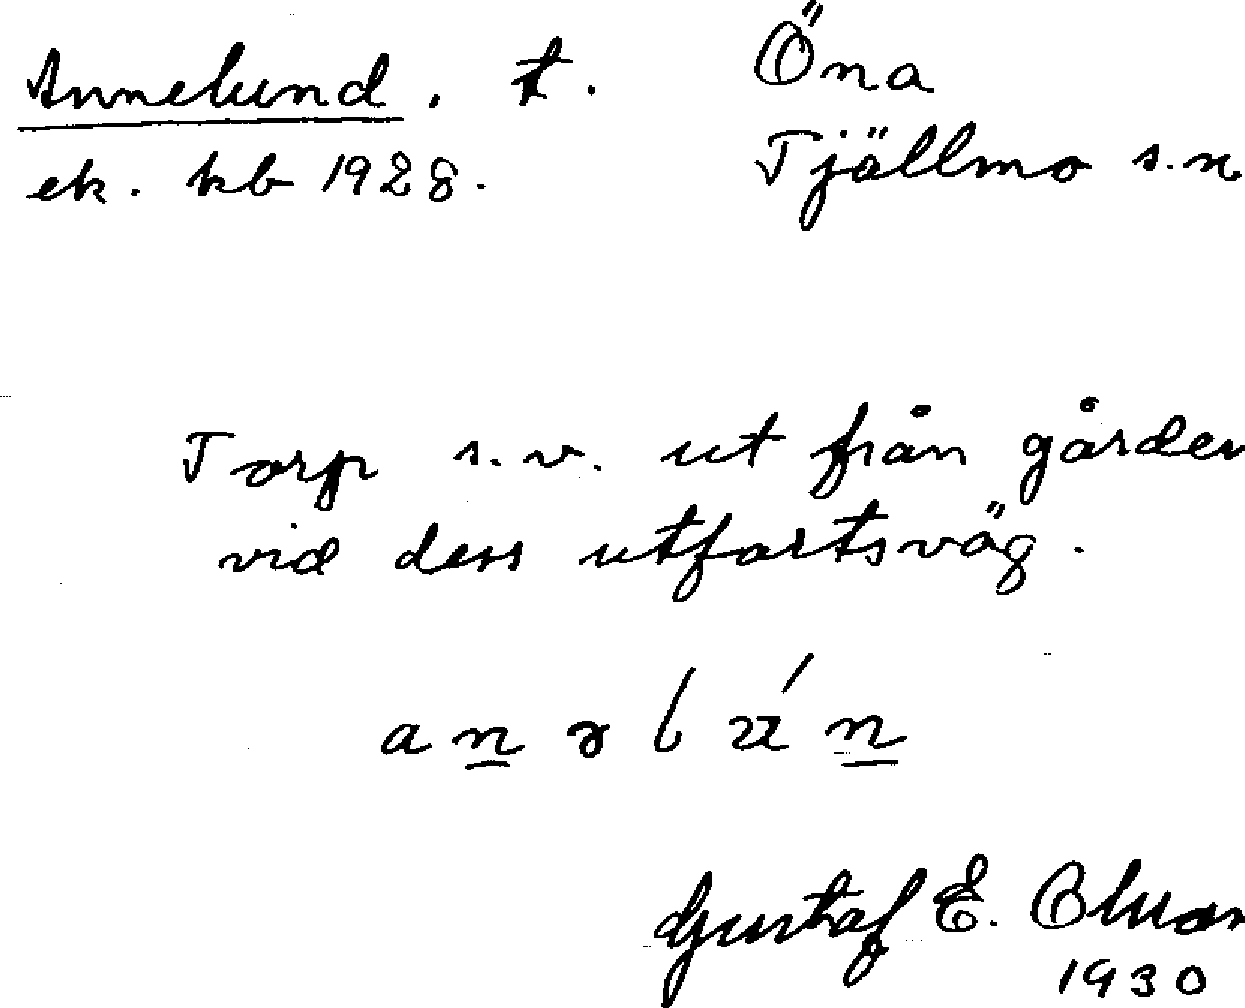 Annelund. t. Öna
ek. kb 1928. Tjällmo s.n.
Torp s.v. ut från gården
vid dess utfartsväg.
Gustaf E. Olson
1930